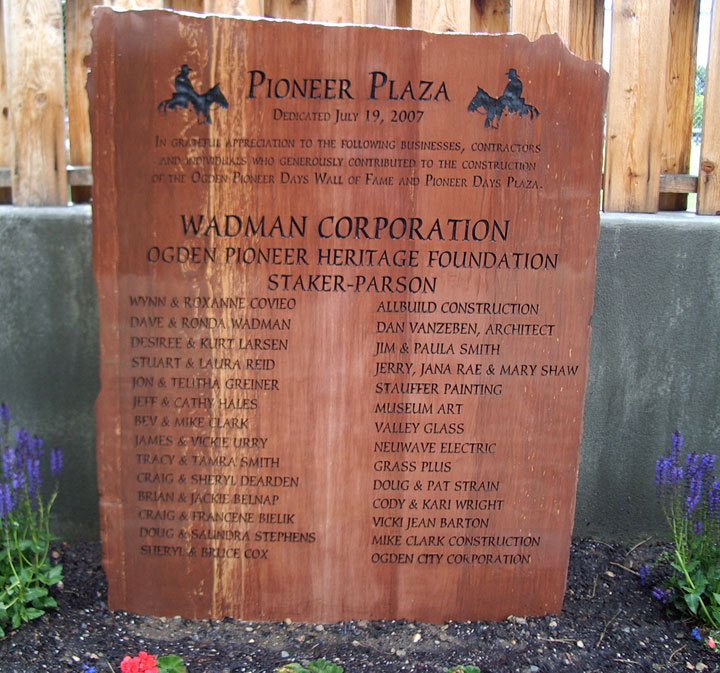 PIONEER PLAZA
DEDICATED JULY 19, 2007
IN GRATEFUL APPRECIATION TO THE FOLLOWING BUSINESSES, CONTRACTORS
AND INDIVIDUALS WHO GENEROUSLY CONTRIBUTED TO THE CONSTRUCTION
OF THE OGDEN PIONEER DAYS WALL OF FAME AND PIONEER DAYS PLAZA.
WADMAN CORPORATION
OGDEN PIONEER HERITAGE FOUNDATION
STAKER-PARSON
WYNN & ROXANNE COVIEO
DAVE & RONDA WADMAN
DESIREE & KURT LARSEN
STUART & LAURA REID
JON & TELITHA GREINER
JEFF & CATHY HALES
BEV & MIKE CLARK
JAMES & VICKIE URRY
TRACY & TAMRA SMITH
CRAIG & SHERYL DEARDEN
BRIAN & JACKIE BELNAP
CRAIG & FRANCENE BIELIK
DOUG & SAUNDRA STEPHENS
SHERYL & BRUCE COX
ALLBUILD CONSTRUCTION
DAN VANZEBEN, ARCHITECT
JIM & PAULA SMITH
JERRY, JANA RAE & MARY SHAW
STAUFFER PAINTING
MUSEUM ART
VALLEY GLASS
NEUWAVE ELECTRIC
GRASS PLUS
DOUG & PAT STRAIN
CODY & KARI WRIGHT
VICKI JEAN BARTON
MIKE CLARK CONSTRUCTION
OGDEN CITY CORPORATION